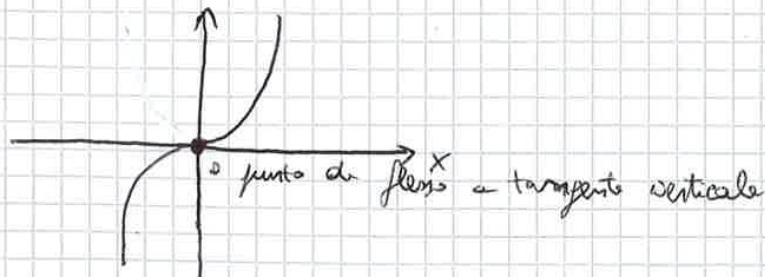 x
0 punto di flesso a tangente verticale